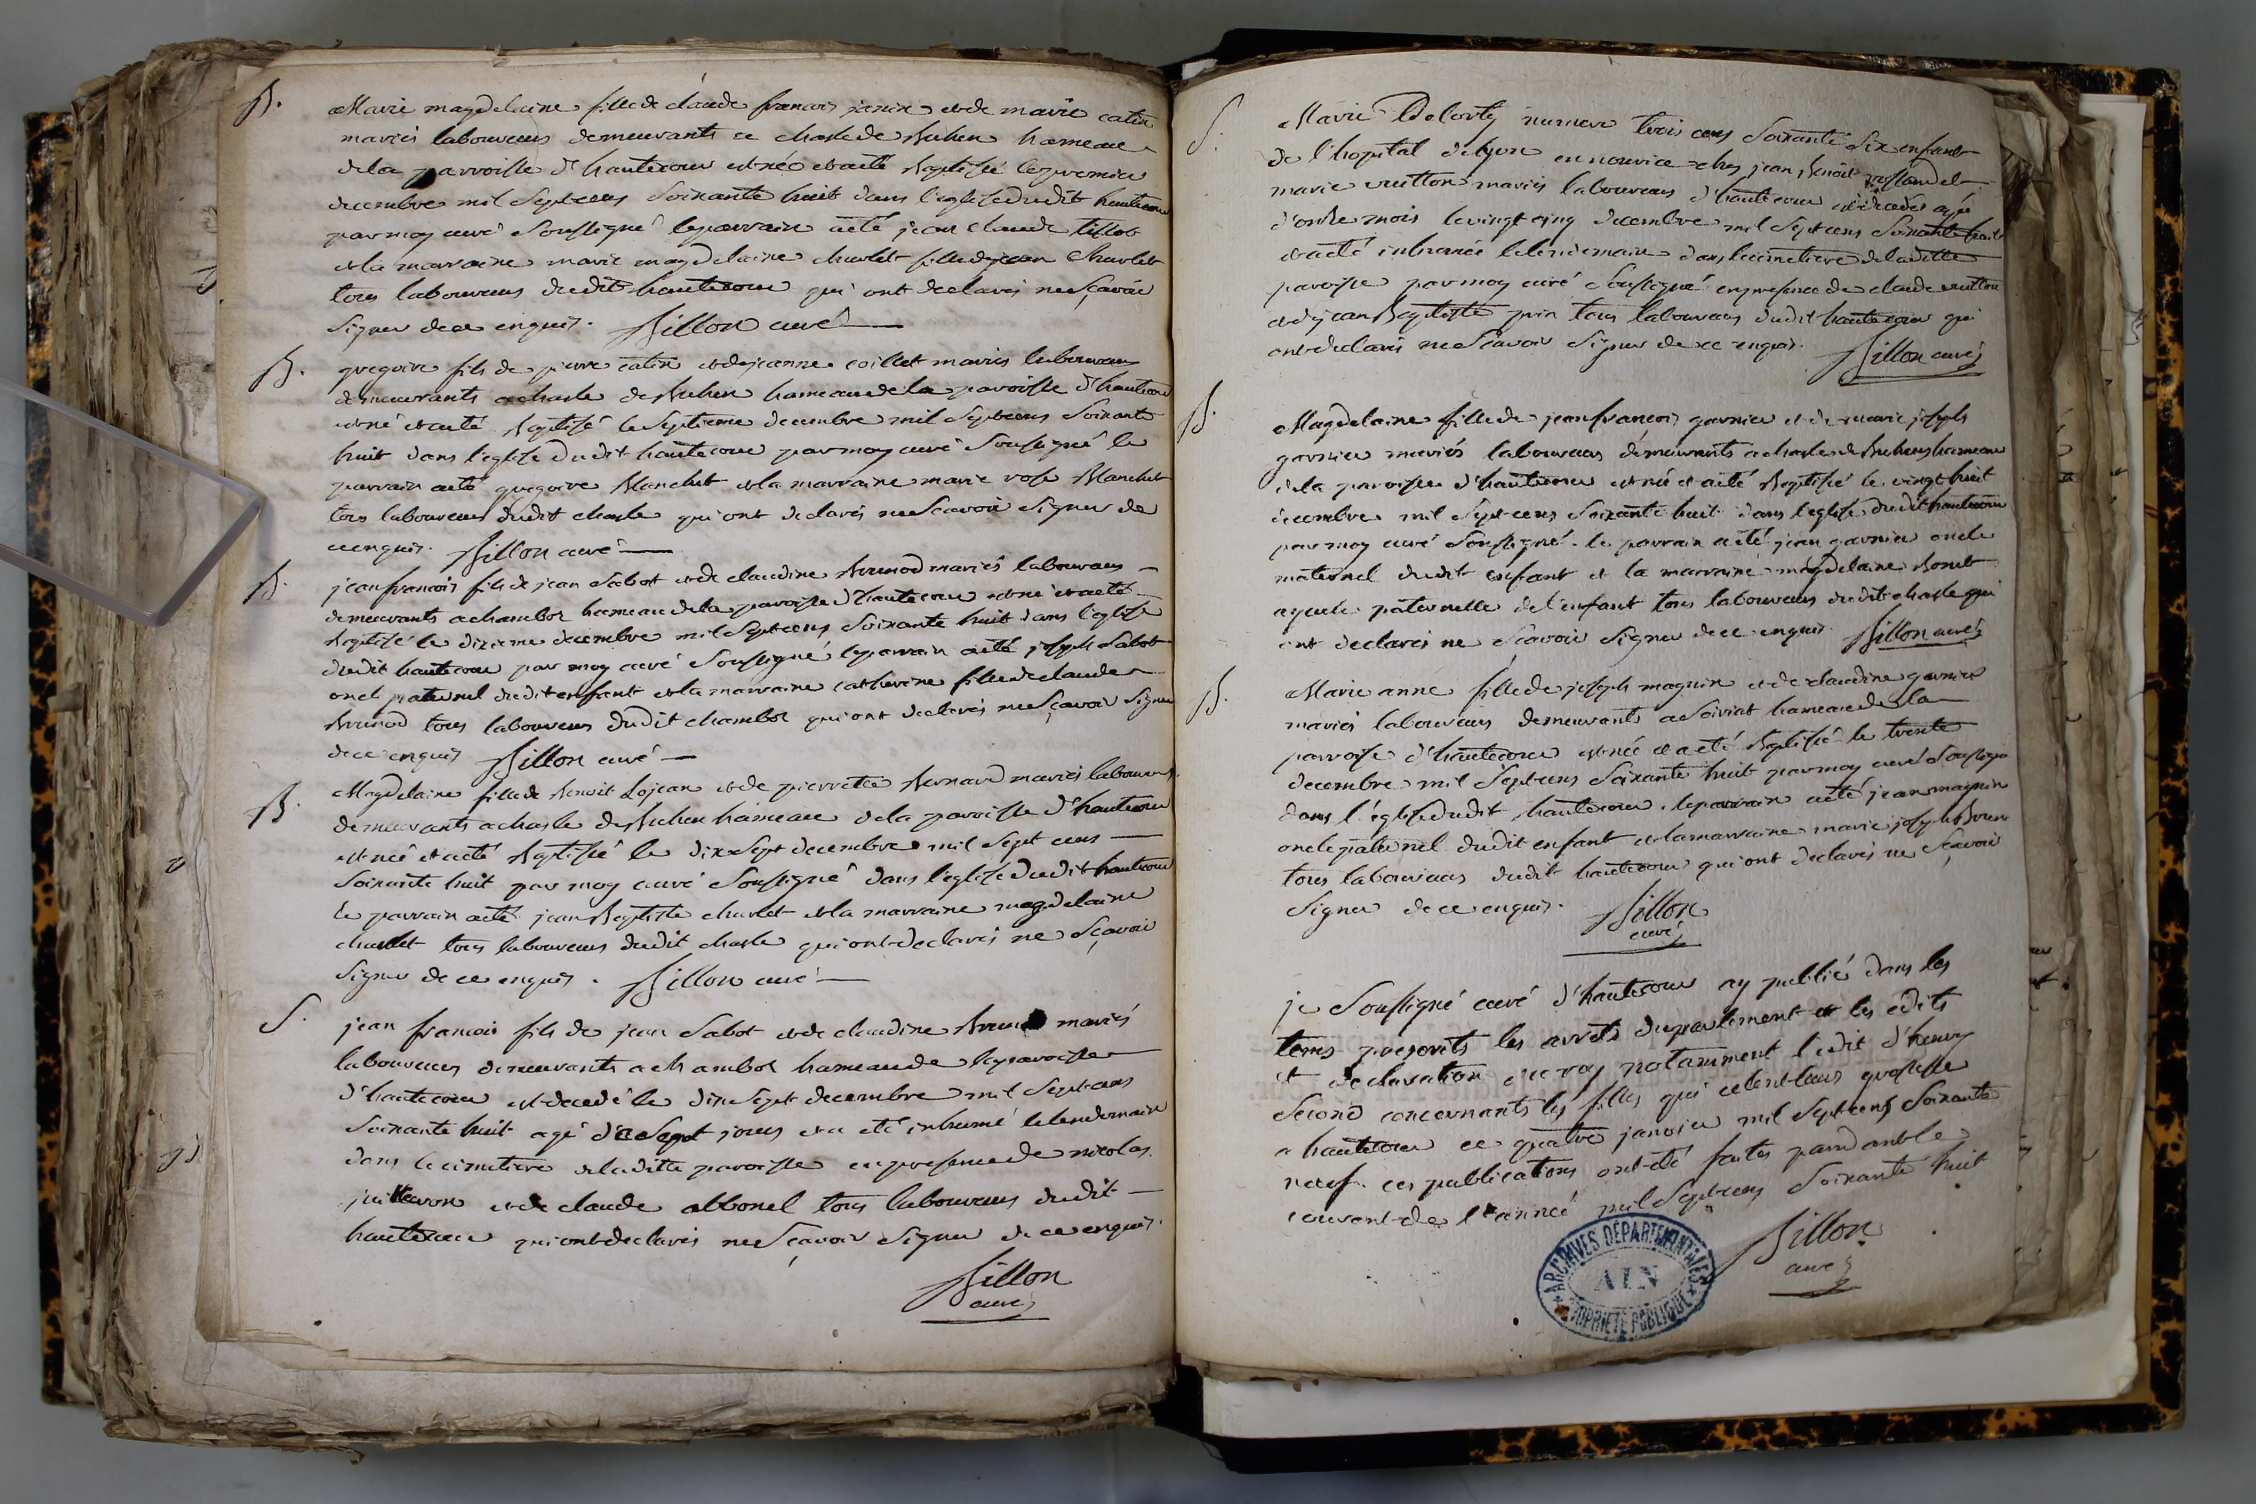 B.
Marie magdelaine fille de claude francois janin et de marie catin
mariés laboureurs demeurants a chasle de Buhen hameau
de la parroisse d'hautecour est née et a eté Baptisé le premier
decembre mil sept cens soixante huit dans l'eglise dudit hautecour
par moy curé soussigné le parrain a eté jean claude tillot
et la marraine marie magdelaine charlet fille de jean charlet
tous laboureurs dudit hautecour qui ont declarés ne sçavoir
signer de ce enquis. Billon curé
B.
gregoire fils de pierre catin et de jeanne coillet mariés laboureurs
demeurants a chasle de Buhen hameau de la paroisse d'hautecour
est né et a eté Baptisé le septieme decembre mil sept cens soixante
huit dans l'eglise dudit hautecour par moy curé soussigné le
parrain a eté gregoire Blanchet et la marraine marie rose Blanchet
tous laboureurs dudit chasle qui ont declarés ne scavoir signer de
ce enquis. Billon curé
B.
jean francois fils de jean Sabot et de claudine Brunod mariés laboureurs
demeurants a chambod hameau de la paroisse d'hautecour est né et a eté
Baptisé le dixieme decembre mil sept cens soixante huit dans l'eglise
dudit hautecour par moy curé soussigné le parrain a eté joseph Sabot
oncl paternel dudit enfant et la marraine catherine fille de claude
Brunod tous laboureurs dudit chambod qui ont declarés ne sçavoir signer
de ce enquis Billon curé
B.
Magdelaine fille de Benoit Lojean et de pierrette Bernard mariés laboureurs
demeurants a chasle de Buhen hameau de la paroisse d'hautecour
est née et a eté Baptisé le dix sept decembre mil sept cens
soixante huit par moy curé soussigné dans l'eglise dudit hautecour
le parrain a eté jean Baptiste charlet et la marraine magdelaine
charlet tous laboureurs dudit chasle qui ont declarés ne sçavoir
signer de ce enquis. Billon curé
S.
jean francois fils de jean Sabot et de claudine mariés
laboureurs demeurants a chambod hameau de la paroisse
d'hautecour est decedé le dix sept decembre mil sept cens
soixante huit agé de sept jours et a eté inhumé le lendemain
dans le cimetiere de la ditte paroisse en presence de nicolas
et de claude abbonel tous laboureurs dudit
hautecour qui ont declarés ne sçavoir signer de ce enquis.
Billon
curé
S.
Marie Delorty numero trois cens soixante six enfant
de l'hopital de lyon en nourice chez jean Benoit et
marie vuitton mariés laboureurs d'hautecour est decedée agée
d'onze mois le vingt cinq decembre mil sept cens soixante huit
et a eté inhumée le lendemain dans le cimetiere de la ditte
paroisse par moy curé soussigné en presence de claude vuitton
et de jean Baptiste tous laboureurs dudit hautecour qui
ont declarés ne scavoir signer de ce enquis. Billon curé
B.
Magdelaine fille de jean francois garnier et de marie joseph
garnier mariés laboureurs demeurants a chasle de Buhen hameau
de la paroisse d'hautecour est née et a eté Baptisé le vingt huit
decembre mil sept cens soixante huit dans l'eglise dudit hautecour
par moy curé soussigné. le parrain a eté jean garnier oncle
maternel dudit enfant et la marraine magdelaine Bonet
ayeule paternelle de l'enfant tous laboureurs dudit chasle qui
ont declarés ne sçavoir signer de ce enquis Billon curé
B.
Marie anne fille de joseph magnin et de claudine garnier
mariés laboureurs demeurants a Soiriat hameau de la
parroisse d'hautecour est née et a eté Baptisé le trente
decembre mil sept cens soixante huit par moy curé soussigné
dans l'église dudit hautecour. le parrain a eté jean magnin
oncle paternel dudit enfant et la marraine marie joseph
tous laboureurs dudit hautecour qui ont declarés ne sçavoir
signer de ce enquis. Billon
curé
je soussigné curé d'hautecour ay publié dans les
tems prescrits les arrets du parlement et les édits
et declaration du roy notamment l'edit d'henry
second concernants les filles qui celent leur grossesse
a hautecour ce quatre janvier mil sept cens soixante
neuf. ces publications ont eté faites pendant le
courant de l'année mil sept cens soixante huit
Billon
curé
ARCHIVES DÉPARTEMENTALES
AIN
PROPRIÉTÉ PUBLIQUE